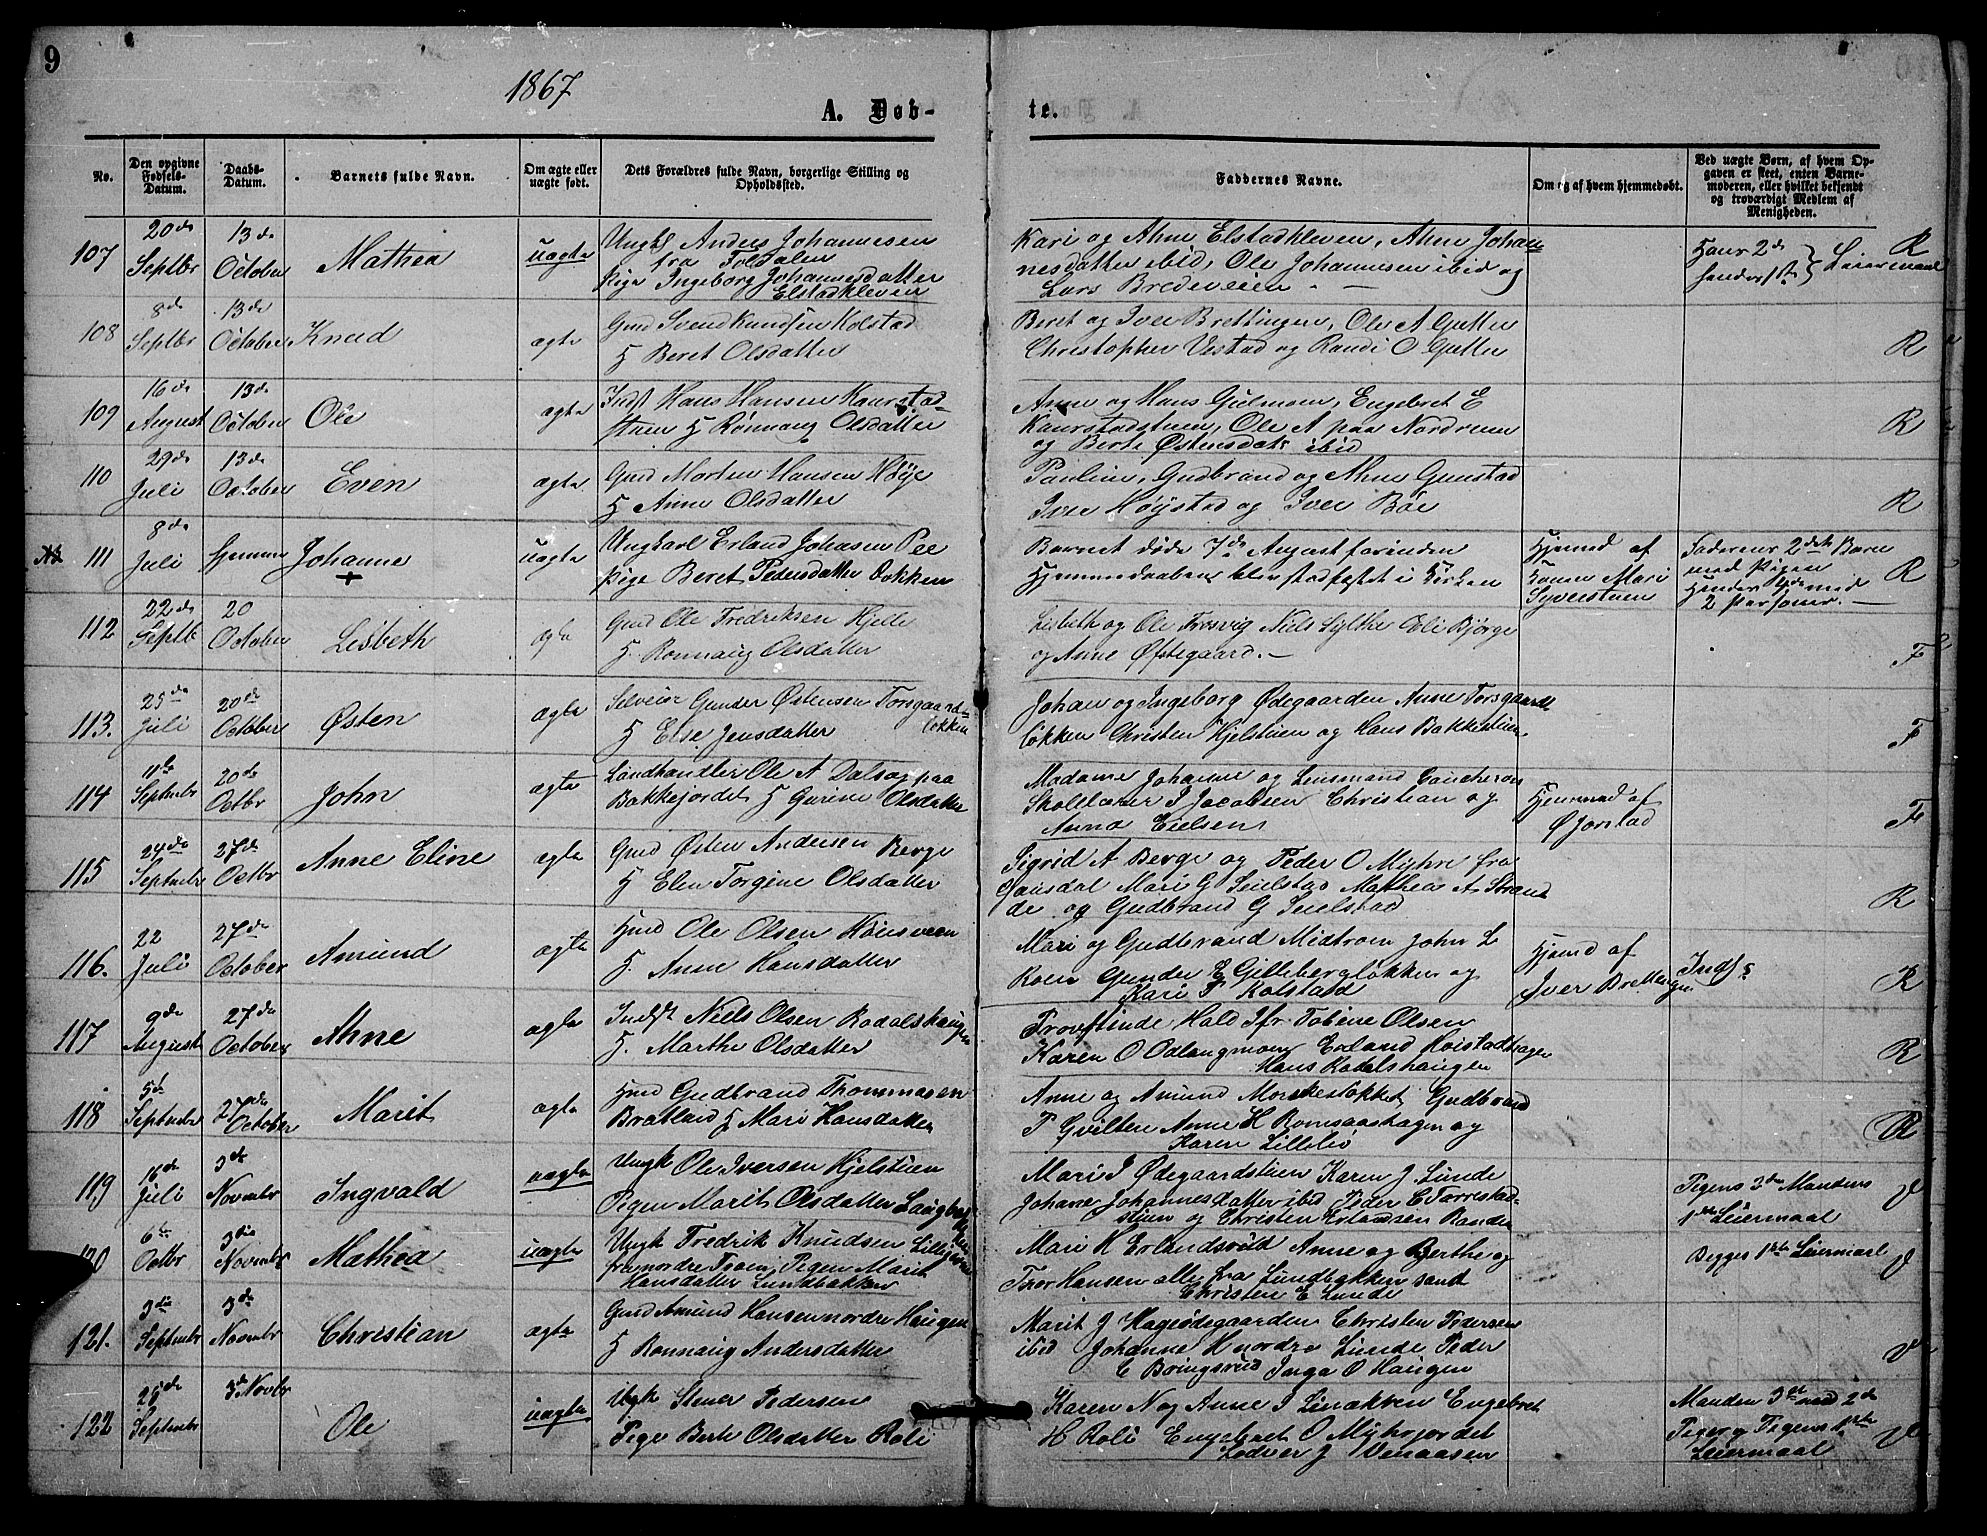 9
1867
A. Døb-
te.
No.
Den opgivne Fødsels-Datum.
Daabs-Datum.
Barnets fulde Navn.
Om ægte eller uægte født.
Dets Forældres fulde Navn, borgerlige Stilling og Opholdssted.
Faddernes Navne.
Om og af hvem hjemmedøbt.
Ved uægte Børn, af hvem Opgaven er skeet, enten Barnemoderen, eller hvilket bekjendt og troværdigt Medlem af Menigheden.
107 20de Septbr 13de October Mathea uægte
Ungkl Anders Johannesen
fra Foldalen
Pige Ingeborg Johannesdatter
Elstadkleven
Kari og Ahne Elstadkleven, Ahne Johan
nesdatter ibid, Ole Johannesen ibid og
Lars Bredeveien. —
Hans 2de
hendes 1ste Leiermaal
R
108 8de Septbr 13de October Knud ægte
Gmd Svend Knudsen Kolstad
H Beret Olsdatter
Beret og Iver Brettingen, Ole A
Christopher Vestad og Randi O
R
109 16de August 13de October Ole ægte
Indst Hans Hansen Kaurstad-
stuen H Rønnaug Olsdatter
Anne og Hans Engebret E
Kaurstadstuen, Ole A paa Nordrum
og Berte Østensdatr ibid
R
110 29de Juli 13de October Even ægte
Gmd Morten Hansen Høye
H Anne Olsdatter
Pauline, Gudbrand og Ahne Gunstad
Iver Høystad og Iver Bøe
R
111 8de Juli Hjemme Johanne uægte
Ungkarl Erland Johnsen Pee
Pige Beret Pedersdatter Løkken
Barnet døde 7de August forinden
Hjemmedaaben blev stadfæstet i Kirken
Hjemd af
Konen Mari
Syverstuen
Faderens 2det Barn
med Pigen
Hendes 4de med
2 Personer. —
R
112 22de Septb 20 October Lisbeth ægte
Gmd Ole Fredriksen Hjelle
H. Rønnaug Olsdatter
Lisbeth og Ole Frosvig Niels Sylthe Eli Bjørge
og Anne Øfstegaard. —
F
113. 25de Juli 20de October Østen ægte
Selveier Gunder Østensen Forsgaard-
løkken
H Else Jensdatter
Johan og Ingeborg Ødegaarden Anne Forsgaards
løkken Christen Hjelstuen og Hans Bakkestuen
F
114 11te Septembr 20de Octbr John ægte
Landhandler Ole A Dalseg paa
Bakkejordet H Gurine Olsdatter
Madame Johanne og Lensmand Gaucheron
Skolelærer J Jacobsen Christian og
Anna Eielsen
Hjemmed af
Ø Jorstad
F
115 24de Septembr 27de Octbr Anne Eline ægte
Gmd Østen Andersen Berge
H Elen Torgine Olsdatter
Sigrid A Berge og Peder O Myhre fra
Gausdal Mari G Seielstad Mathea A Strand
de og Gudbrand G Seielstad
R
116. 22 Juli 27de October Amund ægte
Hmd Ole Olsen Hønsveen
H. Anne Hansdatter
Mari og Gudbrand Midtroen John L
Roen Gunder E Gilleberghløkken og
Kari P Kolstad
Hjemd af
Iver Brettingen
Indst
R
117 9de August 27de October Ahne ægte
Indst Niels Olsen Rodalshaugen
H. Marthe Olsdatter
Provstinde Hald Jfr Tobine Olsen
Karen O Odlaugmoen Erland
Hans Rodalshaugen
R
118 5te Septembr 27de October Marit ægte
Hmd Gudbrand Thommasen
Bratland H Mari Hansdatter
Anne og Amund Morkestokket Gudbrand
P Gvilten Anne H Romsaashagen og
Karen Lilleliø
R
119 16de Juli 3de Novembr Ingvald uægte
Ungk Ole Iversen Hjelstuen
Pigen Marit Olsdatter Laugbakken
Mari I Ødegaardstuen Karen J. Lunde
Johane Johannesdatter ibid Peder E Forrestad-
stuen og Christen Erlandsen Banden
Pigens 3die Mandens
1ste Leiermaal
V
120 6te Octbr 3die Novembr Mathea uægte
Ungk Fredrik Knudsen Lillegaard
fra nordre Froen, Pigen Marit
Hansdatter Lundbakken
Mari H Erlandsrud Anne og Berthe og
Thor Hansen alle fra Lundbakken samt
Christen E Lunde
Begges 1ste Leiermaal
V
121. 3die Septembr 3de Novembr Christian ægte
Gmd Amund Hansen nordre Haugen
H Rønnaug Andersdatter
Marit J Hageødegaarden Christen Pedersen
ibid Johanne H nordre Lunde Peder
E Bringsrud Inga O Haugen
V
122 28de Septembr 3de Novbr Ole uægte
Ungk Stener Pedersen
Pige Berte Olsdatter Roli
Karen N og Anne I Linløkken Engebret
H Roli Engebret O Myhrjordet
Lodver J Venaasen
Manden 3die med 2de
Piger og Pigens 1ste
Leiermaal
V